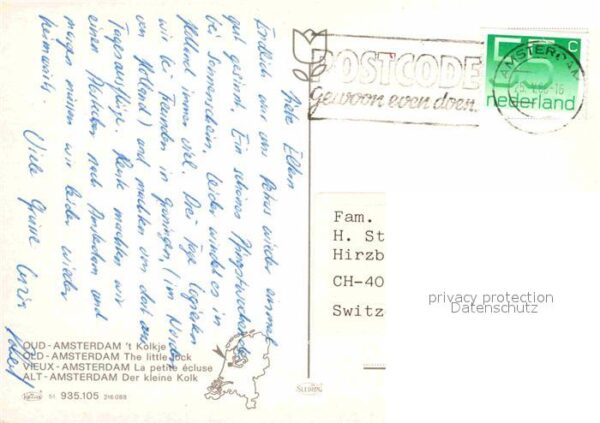 Liebe Eltern
Endlich sind wir Petrus wieder einmal
gut gesinnt. Ein schönes Pfingstwochenende
bei Sonnenschein, leider windet es in
Holland immer viel. Drei Tage logierten
wir bei Freunden in Groningen (im Norden
von Holland) und machten von dort aus
Tagesausflüge. Heute machten wir
einen nach Amsterdam und
morgen müssen wir leider wieder
heimwärts. Viele Grüsse
POSTCODE
gewoon even doen.
AMSTERDAM
55 c
nederland
Fam.
H. St
Hirzb
CH-40
Switz
privacy protection
Datenschutz
OUD-AMSTERDAM 't Kolkje
OLD-AMSTERDAM The little lock
VIEUX-AMSTERDAM La petite écluse
ALT-AMSTERDAM Der kleine Kolk
51 935.105 216.088